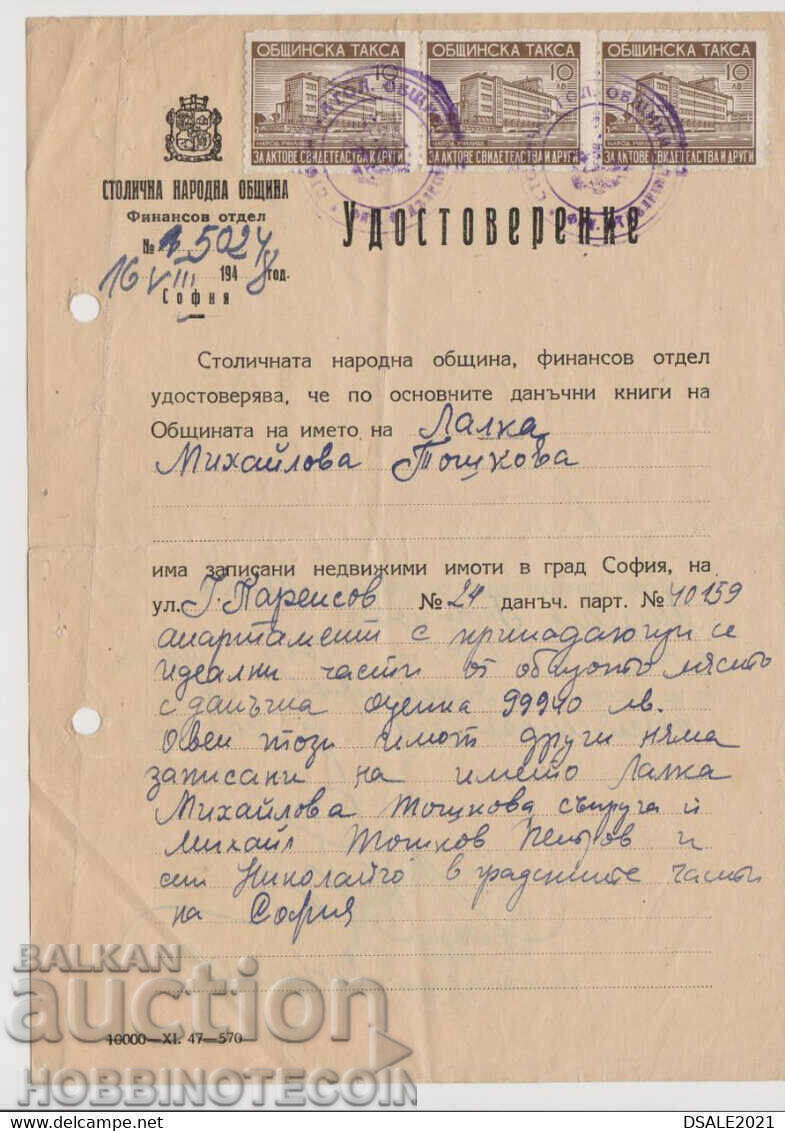 ОБЩИНСКА ТАКСА ОБЩИНСКА ТАКСА ОБЩИНСКА ТАКСА
10 10 лв 10 лв
ЗА АКТОВЕ СВИДЕТЕЛСТВА И ДРУГИ ЗА АКТОВЕ СВИДЕТЕЛСТВА И ДРУГИ ЗА АКТОВЕ СВИДЕТЕЛСТВА И ДРУГИ
СТОЛИЧНА НАРОДНА ОБЩИНА
Финансов отдел
№ 5024
16 VIII 1948 год.
София
Удостоверение
Столичната народна община, финансов отдел
удостоверява, че по основните данъчни книги на
Общината на името на Лалка
Михайлова Тошкова
има записани недвижими имоти в град София, на
ул. № 24 данъч. парт. № 40159
апартамент с принадлежащи се
идеални части от общото място
с данъчна оценка 99940 лв.
Освен този имот други няма
записани на името Лалка
Михайлова Тошкова съпруга ѝ
Михаил Тошков Петров и
син в градските части
на София
10000—XI. 47—570
BALKAN
auction
HOBBINOTECOIN
DSALE2021